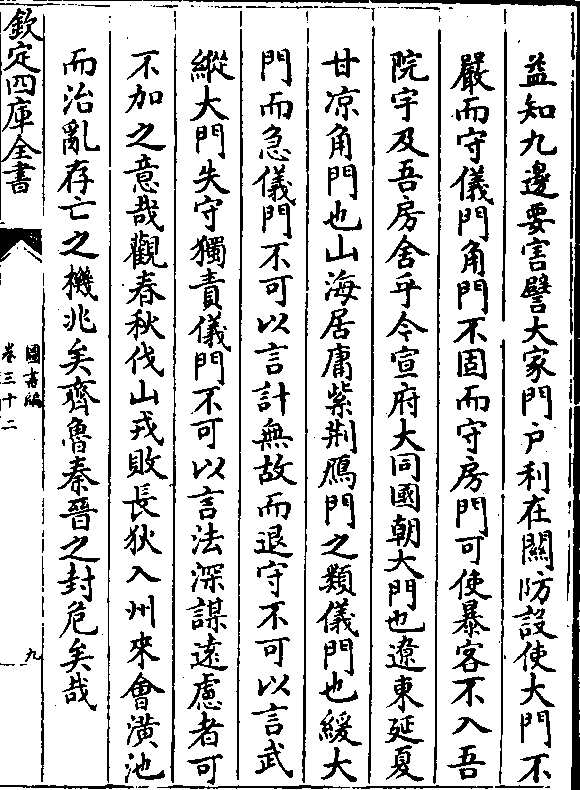 益知九邊要害譬大家門户利在關防設使大門不
嚴而守儀門角門不固而守房門可使暴客不入吾
院宇及吾房舍乎今宣府大同國朝大門也遼東延夏
甘凉角門也山海居庸紫荆鴈門之類儀門也緩大
門而急儀門不可以言計無故而退守不可以言武
縱大門失守獨責儀門不可以言法深謀遠慮者可
不加之意哉觀春秋伐山戎敗長狄入州來會潢池
而治亂存亡之機兆矣齊魯秦晉之封危矣哉
欽定四庫全書
圖書編
卷三十二
九